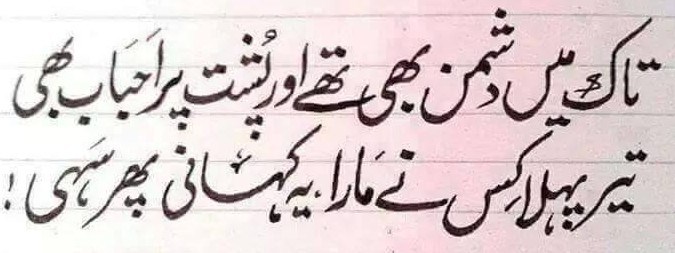 تاک میں دشمن بھی تھے اور پُشت پر اَحبَاب بھی
تیر پہلا کِس نے مَارا، یہ کہَانی پھر سَہی !